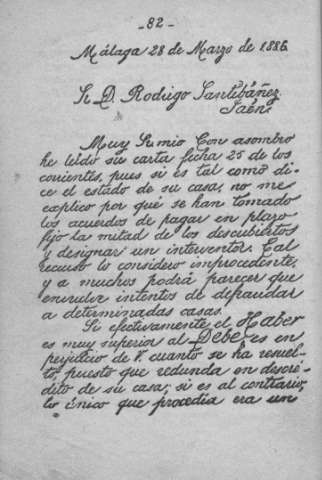 -82-
Málaga 28 de Marzo de 1886.
Sr. D. Rodrigo Santibáñez.
Jaén.
Muy Sr. mio: Con asombro
he leído su carta fecha 25 de los
corrientes, pues si es tal como di-
ce el estado de su casa, no me
explico por qué se han tomado
los acuerdos de pagar en plazo
fijo la mitad de los descubiertos
y designar un interventor. Tal
recurso lo considero improcedente,
y a muchos podrá parecer que
envuelve intentos de defraudar
a determinadas casas.
Si efectivamente el Haber
es muy superior al Debe, es en
perjuicio de V. cuanto se ha resuel-
to, puesto que redunda en descré-
dito de su casa; si es al contrario,
lo único que procedía era un